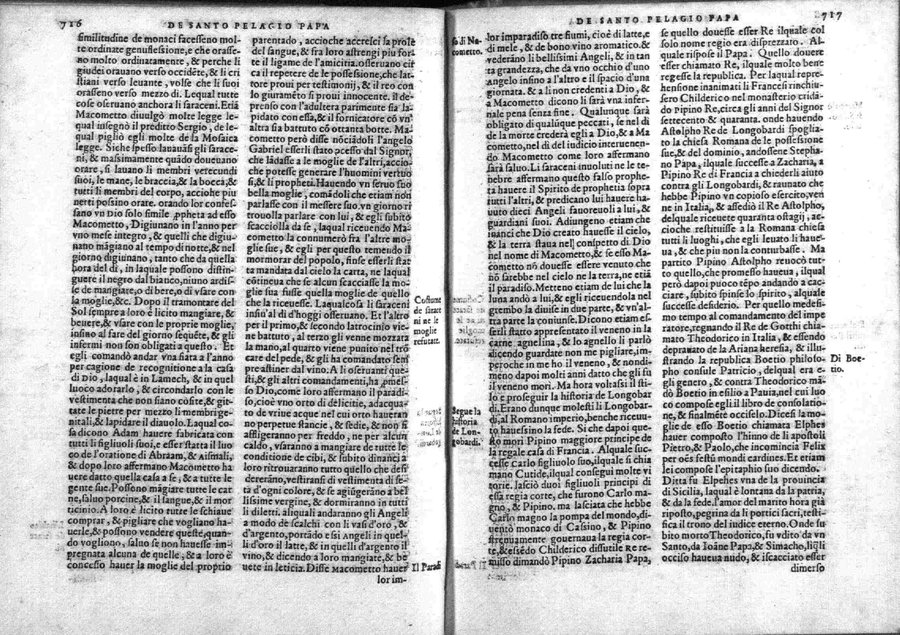 716
DE SANTO PELAGIO PAPA
similitudine de monaci facesseno mol-
te ordinate genuflessione, e che orasse-
no molto ordinatamente, & perche li
giudei orauano verso occidēte, & li cri
stiani verso leuante, volse che li suoi
orasseno verso mezzo di. Lequal tutte
cose oseruano anchora li saraceni. Etiā
Macometto diuulgò molte legge le-
qual insegnò il predito Sergio, de le-
qual pigliò egli molte de la Mosaica
legge. Siche spesso lauauāsi gli sarace-
ni, & massimamente quādo doueuano
orare, si lauano li membri verecundi
suoi, le mane, le braccia, & la bocca, &
tutti li membri del corpo, accioche piu
netti possino orare. orando lor confes-
sano vn Dio solo simile, ppheta ad esso
Macometto, Digiunano in l'anno per
vno mese integro, & quelli che digiu-
nano māgiano al tempo di notte, & nel
giorno digiunano, tanto che da quella
hora del di, in laquale possono distin-
guere il negro dal bianco, niuno ardis-
se de mangiare, o di bere, o di vsare con
la moglie, &c. Dopo il tramontare del
Sol sempre a loro è licito mangiare, &
beuere, & vsare con le proprie moglie,
insino al fare del giorno sequēte, & gli
infermi non son obligati a questo. Et
egli comandò andar vna fiata a l'anno
per cagione de recognitione a la casa
di Dio, laqual è in Lamech, & in quel
luoco adorarlo, & circondarlo con le
vestimenta che non siano cosite, & git-
tate le pietre per mezzo li membri ge-
nitali, & lapidare il diauolo. Laqual co
sa dicono Adam hauere fabricata con
tutti li figliuoli suoi, e esser statta il luo
co de l'oratione di Abraam, & Aismali,
& dopo loro affermano Macometto ha
uere datto quella casa a se, & a tutte le
gente sue. Possono māgiare tutte le car
ne, saluo porcine, & il sangue, & il mor
ticinio. A loro è licito tutte le schiaue
comprar, & pigliare che vogliano ha-
uerle, & possono vendere queste, quan-
do vogliano, saluo se non hauesse im-
pregnata alcuna de quelle, & a loro è
concesso hauer la moglie del proprio
parentado, accioche accresci sa prole
del sangue, & fra loro astrengi piu for-
te il ligame de l'amicitia. osseruano cit
ca il repetere de le possessione, che lat-
tore proui per testimonij, & il reo con
lo giuramēto si proui innocente. il de-
prenso con l'adultera parimente sia la-
pidato con essa, & il fornicatore cō vn'
altra sia battuto cō ottanta botte. Ma-
cometto però disse nōciādoli l'angelo
Gabriel esserli stato pcesso dal Signor,
che lādasse a le moglie de l'altri, accio-
che potesse generare l'huomini vertuo
si, & li propheti. Hauendo vn seruo suo
bella moglie, comādoli che etiam non
parlasse con il messere suo, vn giorno ri
trouolla parlare con lui, & egli subito
scacciolla da se, laqual riceuendo Ma-
cometto la connumerò fra l'altre mo-
glie sue, & egli per questo temendo il
mormorar del popolo, finse esserli sta-
ta mandata dal cielo la carta, ne laqual
cōtineua che se alcun scacciasse la mo-
glie sua fusse quella moglie de quello
che la riceuesse. Laqualcosa li saraceni
insin'al di d'hoggi osseruano. Et l'altro
per il primo, & secondo latrocinio vie-
ne battuto, al terzo gli venne mozzata
la mano, al quarto viene punito nel tro
care del pede, & gli ha comandato sem
pre astiner dal vino. A li oseruanti que-
sti, & gli altri comandamenti, ha pmes-
so Dio, come loro affermano il paradi-
so, cioè vno orto di delitie, adacqua-
to de vriue acque nel cui orto haueran
no perpetue stancie, & sedie, & non si
assligeranno per freddo, ne per alcun
caldo, vsaranno a mangiare de tutte le
conditione de cibi, & subito dinanci a
loro ritrouaranno tutto quello che desi
dereranno, vestiransi di vestimenta di se
ta d'ogni colore, & se giūgerano a bel
lissime vergine, & dormiranno in tutti
li diletti. aliquali andaranno gli Angeli
a modo de scalchi con li vasi d'oro, &
d'argento, portādo e si Angeli in quel-
li d'oro il latte, & in quelli d'argento il
vino, & dicendo a loro mangiate, & be
uete in leticia. Disse Macometto hauer
lor im-
Costume
de sarace
ni ne le
moglie
refutate.
Il Paradi
717
DE SANTO PELAGIO PAPA
so di Ma
cometto.
Segue la
historia
de Lon-
gobardi.
lor imparadiso tre fiumi, cioè di latte, e
di mele, & de bono vino aromatico. &
vederāno li bellissimi Angeli, & in tan
ta grandezza, che da vno occhio d'uno
angelo insino a l'altro e il spacio d'una
giornata. & a li non credenti a Dio, &
a Macometto dicono li sarà vna infer-
nale pena senza fine. Qualunque sarà
obligato di qualūque peccati, se nel di
de la morte crederà egli a Dio, & a Ma
cometto, nel di del iudicio interuenen-
do Macometto come loro affermano
sarà saluo. Li saraceni inuoluti ne le te-
nebre affermano questo falso prophe-
ta hauere il Spirito de prophetia sopra
tutti l'altri, & predicano lui hauere ha-
uuto dieci Angeli fauoreuoli a lui, &
guardiani suoi. Adiungeno etiam che
inanci che Dio creato hauesse il cielo,
& la terra staua nel conspetto di Dio
nel nome di Macometto, & se esso Ma-
cometto nō douesse essere venuto che
nō sarebbe nel cielo ne la terra, ne etiā
il paradiso. Metteno etiam de lui che la
luna andò a lui, & egli riceuendola nel
grembo la diuise in due parte, & vn'al-
tra parte la coniunse. Dicono etiam es-
serli stato appresentato il veneno in la
carne agnelina, & lo agnello li parlò
dicendo guardate non me pigliare, im-
peroche in me ho il veneno, & nondi-
meno dapoi molti anni datto che gli fu
il veneno morì. Ma hora voltasi il sti-
lo e proseguir la historia de Longobar
di. Erano dunque molesti li Longobar
di, al Romano imperio, benche riceuu-
to hauessino la fede. Si che dapoi que-
sto mori Pipino maggiore principe de
la regale casa di Francia. Alqual suc-
cesse Carlo figliuolo suo, ilquale si chia
mano Cutide, ilqual conseguì molte vi
torie. lasciò duoi figliuoli principi di
essa regia corte, che furono Carlo ma-
gno, & Pipino, ma lasciata che hebbe
Carlo magno la pompa del mondo, di-
uentò monaco di Cassino, & Pipino
strenuamente gouernaua la regia cor-
te, & essēdo Childerico dissutile Re re-
misso dimandò Pipino Zacharia Papa,
se quello douesse esser Re ilquale col
solo nome regio era disprezzato. Al-
quale rispose il Papa. Quello douere
esser chiamato Re, ilquale molto bene
regesse la republica. Per laqual repre-
hensione inanimati li Francesi rinchiu-
seno Childerico nel monasterio, cridā-
do Pipino Re, circa gli anni del Signor
settecento & quaranta. onde hauendo
Astolpho Re de Longobardi spoglia-
to la chiesa Romana de le possessione
sue, & del dominio, andossene Stepha-
no Papa, ilquale successe a Zacharia, a
Pipino Re di Francia a chiederli aiuto
contra gli Longobardi, & raunato che
hebbe Pipino vn copioso esercito, ven
ne in Italia, & assediò il Re Astolpho,
delquale riceuete quaranta ostagij, ac-
cioche restituisse a la Romana chiesa
tutti li luoghi, che egli leuato li haue-
ua, & che piu non la conturbasse. Ma
partito Pipino Astolpho reuocò tut-
to quello, che promesso haueua, ilqual
però dapoi puoco tēpo andando a cac-
ciare, subito spinse lo spirito, alquale
successe desiderio. Per quello medesi-
mo tempo al comandamento del impe
ratore, regnando il Re de Gotthi chia-
mato Theodorico in Italia, & essendo
deprauato de la Ariana keresia, & illu-
strando la republica Boetio philoso-
pho consule Patricio, delqual era e-
gli genero, & contra Theodorico mā-
dò Boetio in esilio a Pauia, nel cui luo
co compose egli il libro de consolatio-
ne, & finalmēte occiselo. Dicesi la mo-
glie de esso Boetio chiamata Elphes
hauer composto l'hinno de li apostoli
Pietro, & Paolo, che incomincia Felix
per oēs festū mundi cardines. Et etiam
lei compose l'epitaphio suo dicendo.
Ditta fu Elpehes vna de la prouincia
di Sicilia, laqual è lontana da la patria,
& da la fede. l'amor del marito hora già
riposata, pegrina da li portici sacri, testi-
fica il trono del iudice eterno. Onde su
bito morto Theodorico, fu vdito da vn
Santo, da Ioāne Papa, & Simacho, liqli
occiso haueua nudo, & iscacciato esser
dimerso
Di Boe-
tio.